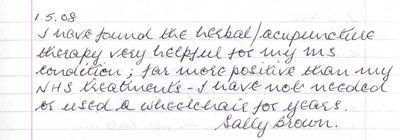 1.5.08
I have found the herbal/acupuncture
therapy very helpful for my ms
condition; far more positive than my
NHS treatments - I have not needed
or used a wheelchair for years.
Sally Brown.